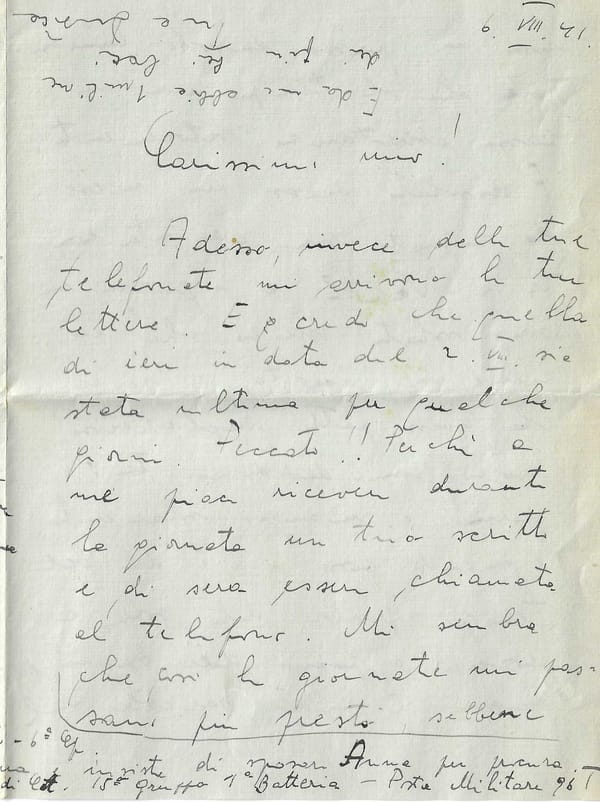 9. VIII. 41.
E da me abbi 1 milione
dei più bei baci
Carissimi mio!
Adesso, invece delle tue
telefonate mi arrivono le tue
lettere. E credo che quella
di ieri in data del 2. VIII. sia
stata ultima per qualche
giorni. Peccato!! Perchè a
me piace ricevere durante
la giornata un tuo scritto
e, di sera essere chiamata
al telefono. Mi sembra
che così le giornate mi pas-
sano più presto, sebbene
- 6ª
insiste di sposare Anna per procura
15º Gruppo 1ª Batteria - Posta Militare 96